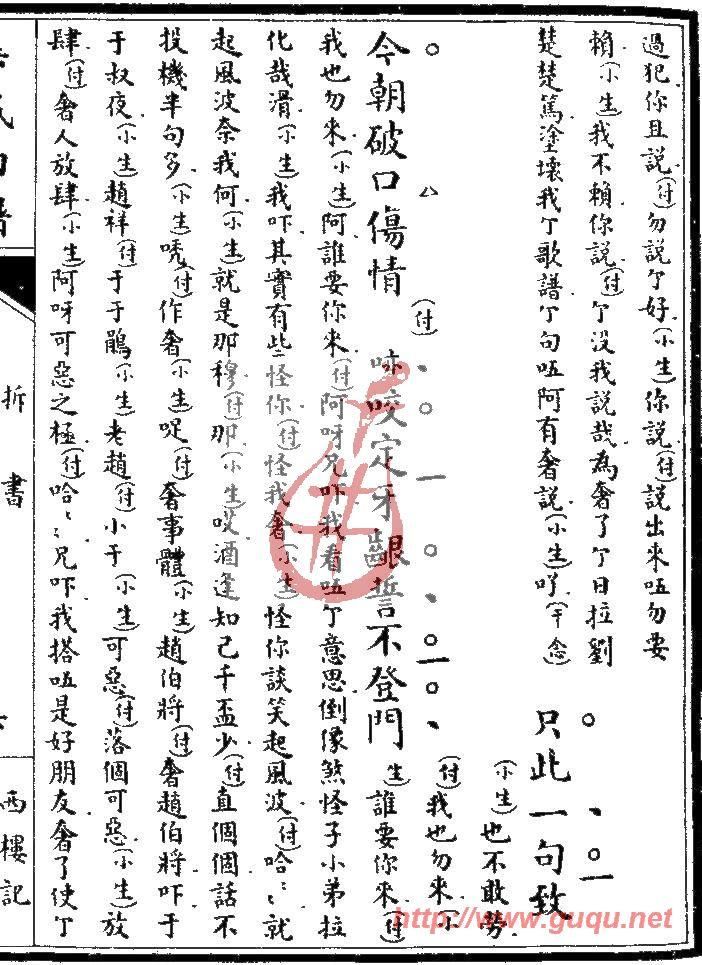 過犯你且説(付)勿説个好(小生)你説(付)説出來唔勿要
賴(小生)我不賴你説(付)个没我説哉為奢了个日拉劉
楚楚篤塗壞我个歌譜个句唔阿有奢説(小生)(干念)
只此一句致
(小生)也不敢勞
今朝破口傷情(付)咬定牙齦誓不登門(付)我也勿來(小
生)誰要你來(付)
我也勿來(小生)阿誰要你來(付)阿呀兄吓我看唔个意思倒像煞怪子小弟拉
化哉滑(小生)我吓其實有些怪你(付)怪我奢(小生)怪你談笑起風波(付)哈〻〻就
起風波奈我何(小生)就是那穆(付)那(小生)哎酒逢知己千盃少(付)直個個話不
投機半句多(小生)唬(付)作奢(小生)呢(付)奢事體(小生)趙伯將(付)奢趙伯將吓于
于叔夜(小生)趙祥(付)于于鵑(小生)老趙(付)小于(小生)可惡(付)落個可惡(小生)放
肆(付)奢人放肆(小生)阿呀可惡之極(付)哈〻〻兄吓我搭唔是好朋友奢了使个
拆書
西樓記
http://www.guqu.net